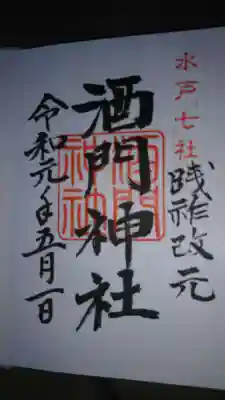 水戸七社
践祚改元
酒門神社
酒門神社
令和元年五月一日